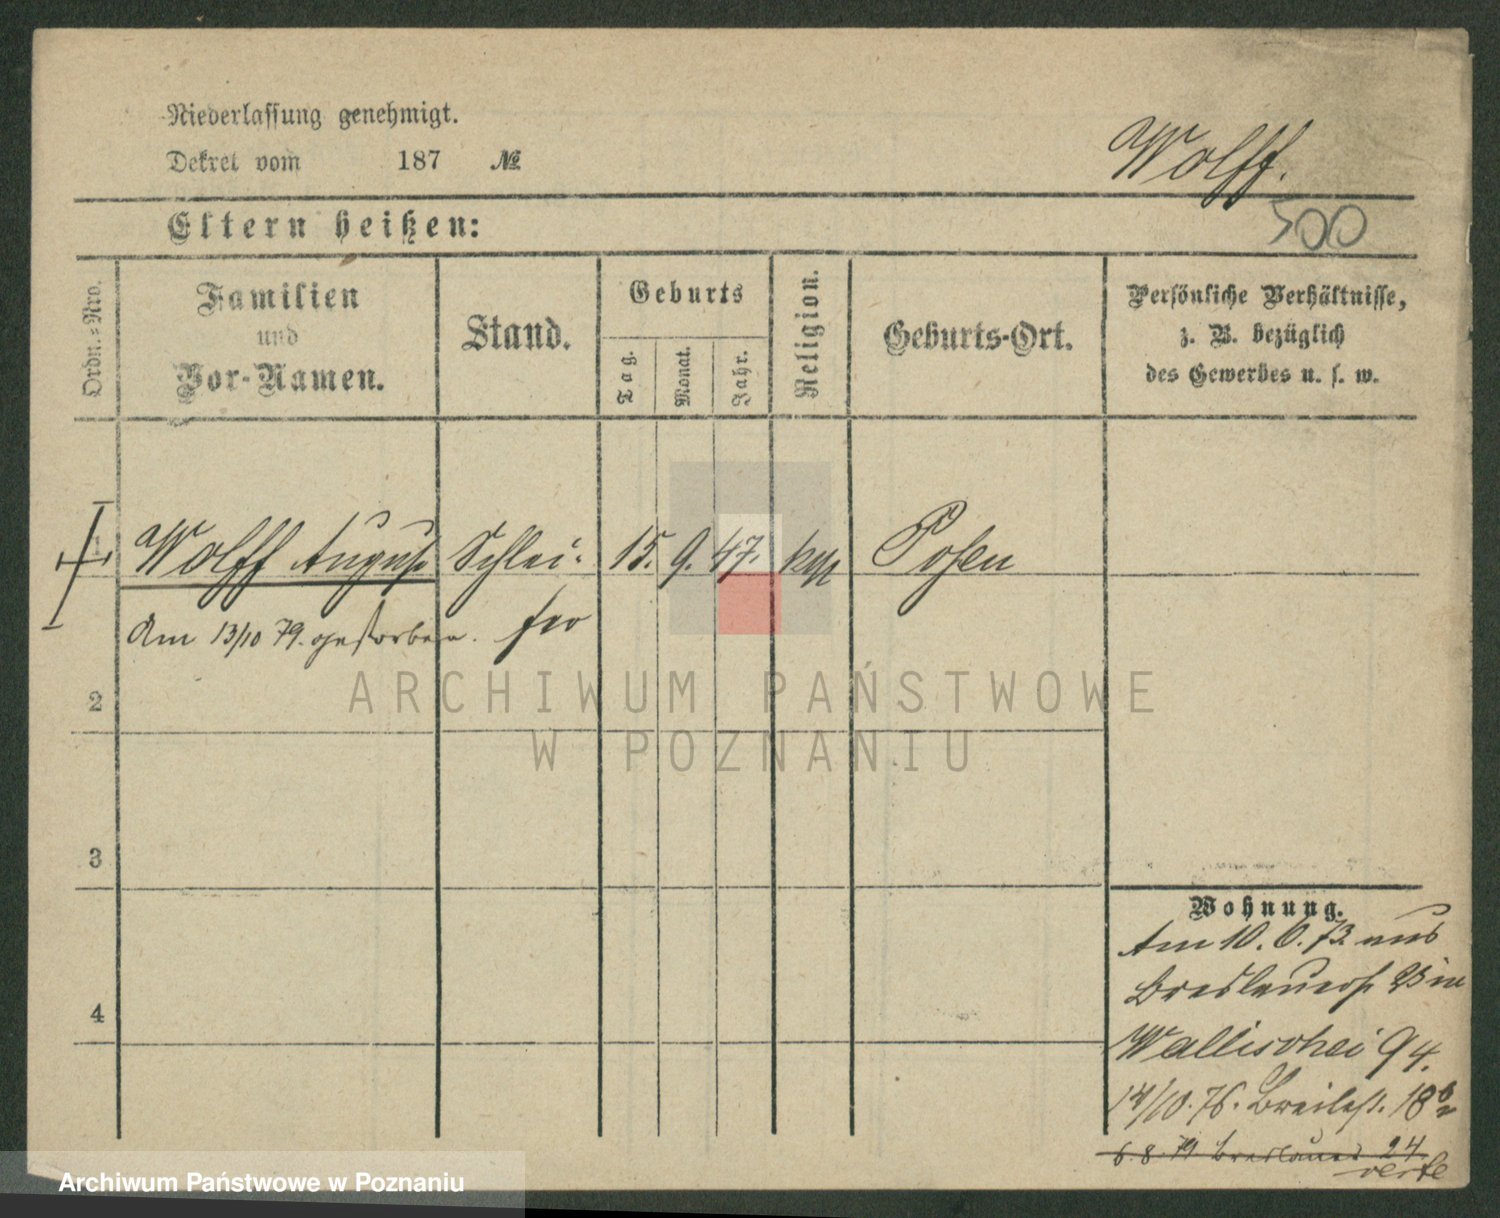 Niederlassung genehmigt.
Dekret vom 187 №
Wolff.
Eltern heißen:
500
Ordn.-Nro.
Familien
und
Vor-Namen.
Stand.
Geburts
Tag.
Monat.
Jahr.
Religion.
Geburts-Ort.
Persönliche Verhältnisse,
z. B. bezüglich
des Gewerbes u. s. w.
1
Wolff August Schlei- 15. 9. 47. Posen
Am 13/10 79. gestorben. fer
2
ARCHIWUM PAŃSTWOWE
W POZNANIU
3
Wohnung.
Am 10. 6. 73. aus
Breslauerst in
4
Wallischei 94.
14/10. 76. Breitest. 18
6. 8. 79 Breslauer 24
verte
Archiwum Państwowe w Poznaniu